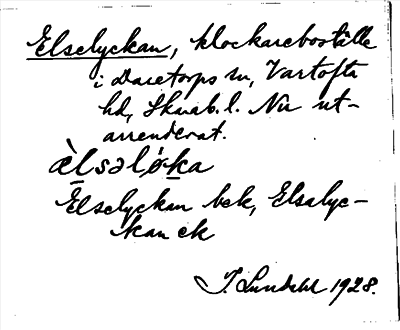 Elselyckan, klockareboställe
i Daretorps sn, Vartofta
hd, Skarab. l. Nu ut-
arrenderat.
ælsəlỳka
Elselyckan bek, Elsalyc-
kan ek
J. Lundahl 1928.